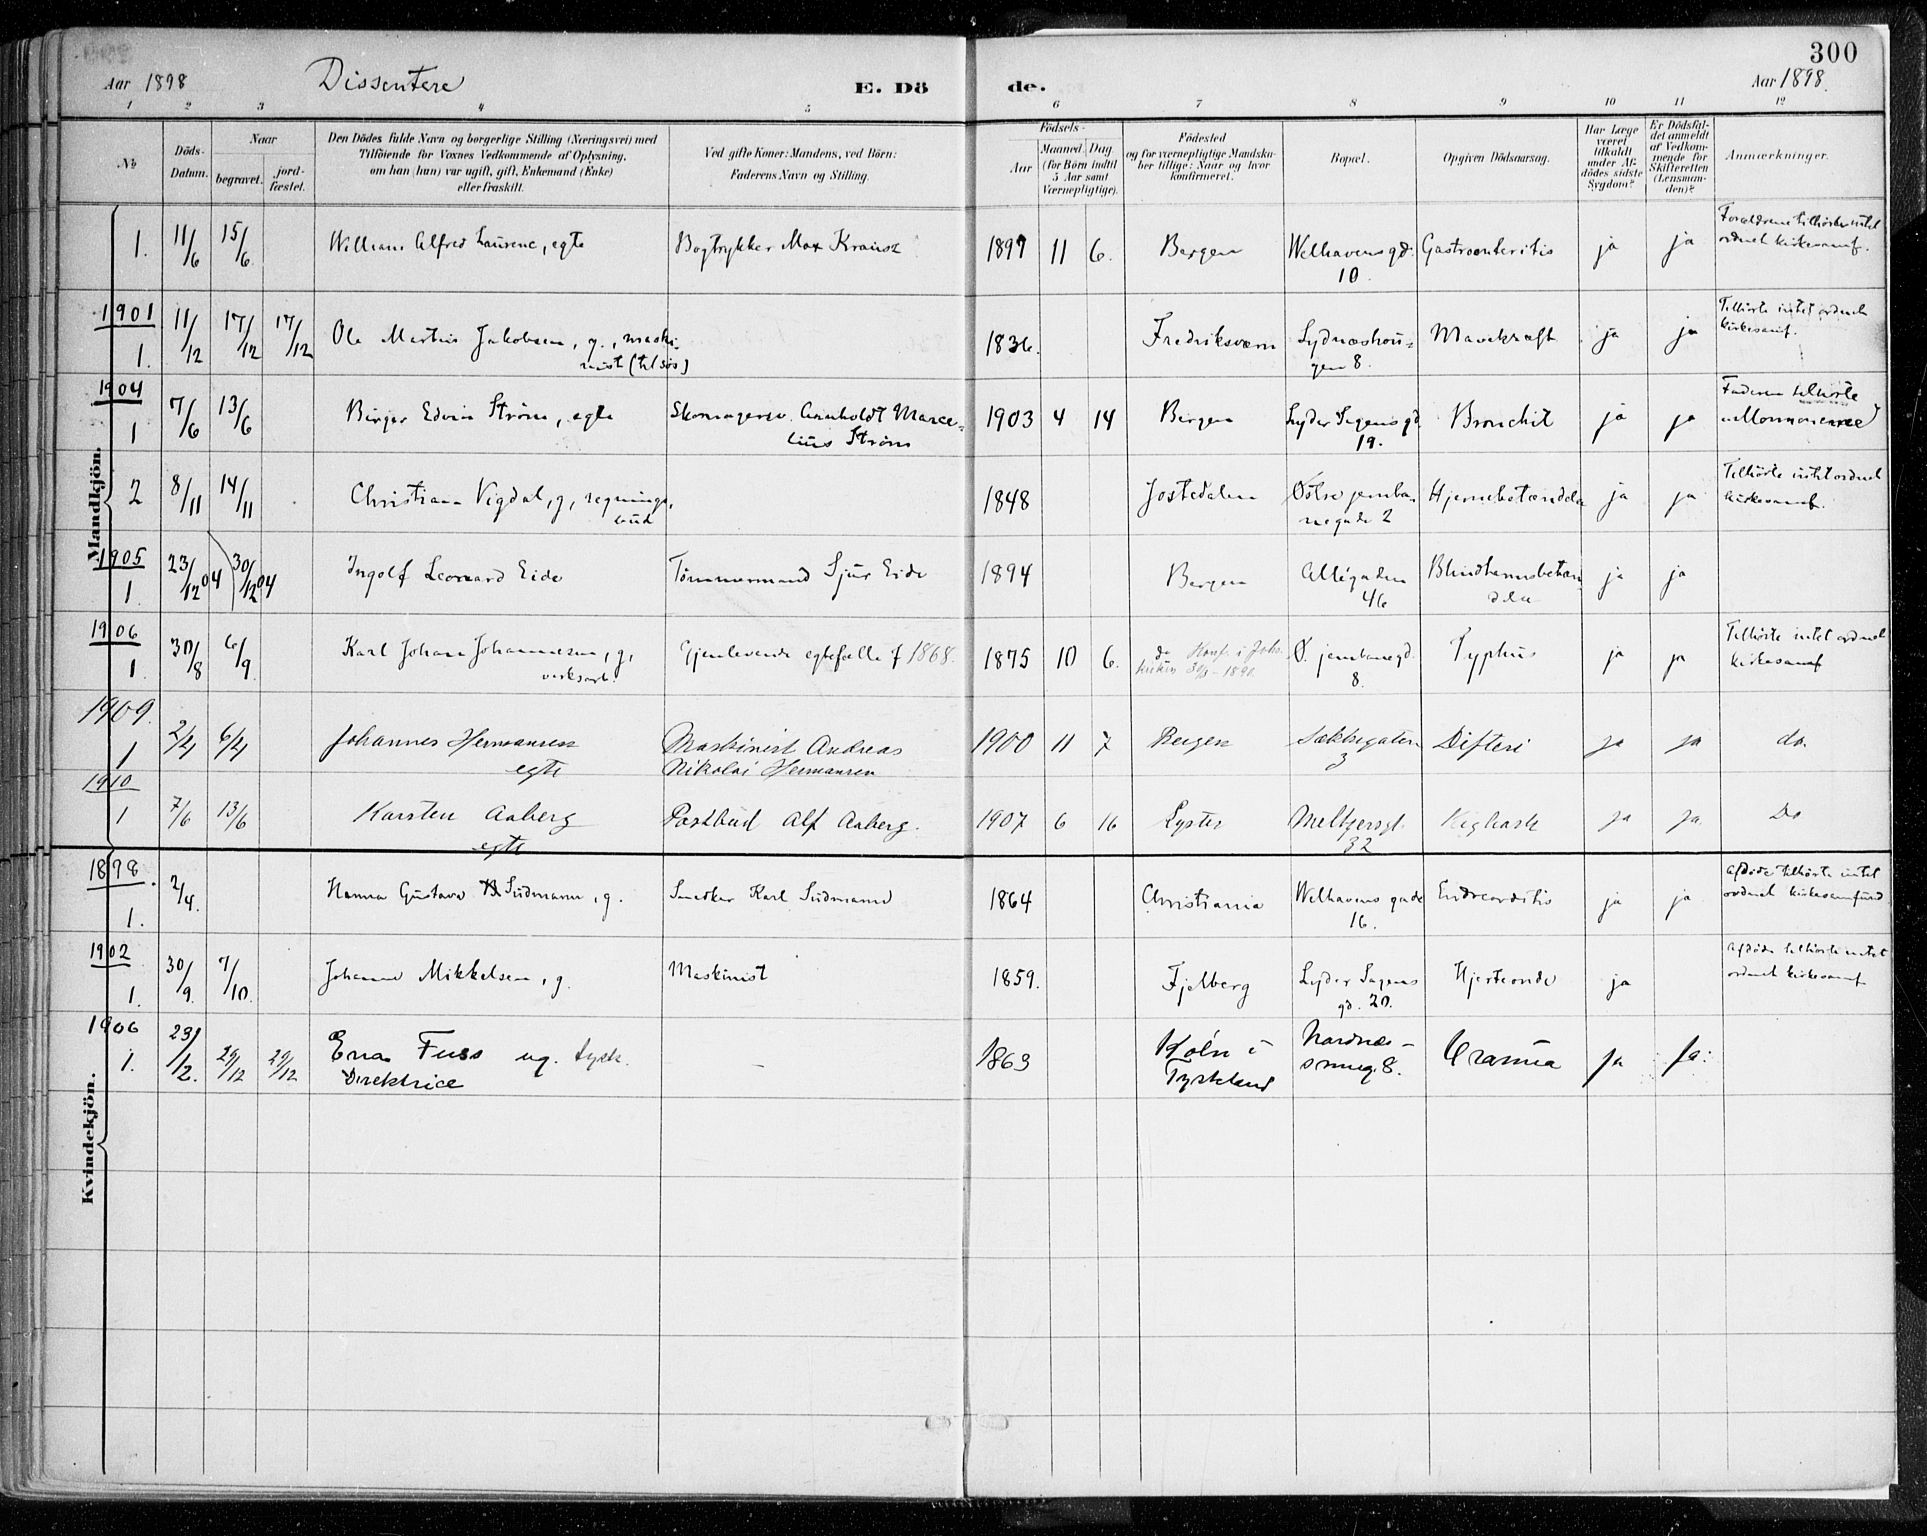 300
Aar 1898 Dissentere E. Dö de. Aar 1898.
1 2 3 4 5 6 7 8 9 10 11 12
No
Döds-Datum.
Naar
begravet.
jord-fæstet.
Den Dödes fulde Navn og borgerlige Stilling (Næringsvei) med
Tilföiende for Voxnes Vedkommende af Oplysning,
om han (hun) var ugift, gift, Enkemand (Enke)
eller fraskilt.
Ved gifte Koner: Mandens, ved Børn:
Faderens Navn og Stilling.
Födsels-
Aar
Maaned. Dag.
(for Börn indtil
5 Aar samt
Værnepligtige).
Födested
og for værnepligtige Mandska-
ber tillige: Naar og hvor
konfirmeret.
Bopæl.
Opgiven Dödsaarsag.
Har Læge
været
tilkaldt
under Af-
dödes sidste
Sygdom?
Er Dödsfal-
det anmeldt
af Vedkom-
mende for
Skifteretten
(Lensman-
den)?
Anmærkninger.
Mandkjön.
1. 11/6 15/6 William Alfred Laurenc, egte Bogtrykker Max Krausz 1897 11 6. Bergen Welhavens gd. 10. Gastroenteritis ja ja Forældrene tilhörte intet
ordnet kirkesamf.
1901
1. 11/12 17/12 17/12 Ole Martin Jakobsen, g., maski-
nist (tilsøs) 1836. Fredriksværn Sydnæshau-
gen 8. Mavekræft ja ja Tilhörte intet ordnet
kirkesamf.
1904
1 7/6 13/6 Birger Edvin Ström, egte Skomagersv. Arnholdt Marce-
lius Ström 1903 4 14 Bergen Lyder Sagens gd.
19. Bronchit ja ja Faderen tilhörte
Mormonerne
2 8/11 14/11 Christian Vigdal, g, regnings-
bud 1848 Jostedalen Östre jernba-
negade 2 Hjernebetændelse ja ja Tilhörte intet ordnet
kirkesamf.
1905
1. 23/12 04 30/12 04 Ingolf Leonard Eide Tömmermand Sjur Eide 1894 Bergen Allégaden
46 Blindtarmsbetæn-
delse ja ja
1906
1. 30/8 6/9. Karl Johan Johannesen, g,
verksarb. Gjenlevende egtefælle f 1868. 1875 10 6. do Konf. i Joh.
kirken 1890. Ø. jernbanegd.
8. Typhus ja ja Tilhörte intet ordnet
kirkesamf
1909.
1 2/4 6/4 Johannes Hermansen
egte Maskinist Andreas
Nikolai Hermansen 1900 11 7 Bergen Sækkegaten
3 Difteri ja ja do.
1910
1 7/6 13/6 Karsten Aaberg
egte Postbud Alf Aaberg. 1907 6 16 Lyster Meltzersgt.
32 Kighoste ja ja. Do
Kvindekjön.
1898.
1. 2/4. Hanna Gustava Südmann, g. Snedker Karl Südmann 1864 Christiania Welhavens gade
16. Endocarditis ja ja afdøde tilhörte intet
ordnet kirkesamfund
1902
1. 30/9. 7/10. Johanne Mikkelsen, g. Maskinist 1859. Fjelberg Lyder Sagens
gd. 20. Hjerteonde ja afdøde tilhörte intet
ordnet kirkesamf
1906
1. 23/12. 29/12 29/12 Erna Fuss ug. tysk.
Direktrice - 1863 Köln i
Tyskland Nordnæs-
smug. 8. Uræmia Ja Ja.